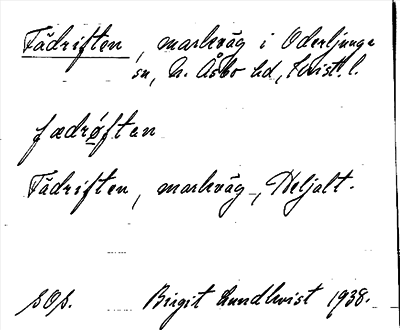 Fädriften, markväg i Oderljunga
sn, N. Åsbo hd, Krist. l.
fædrøften
Fädriften, markväg, Heljalt.
sOs. Birgit Lundkvist 1938.